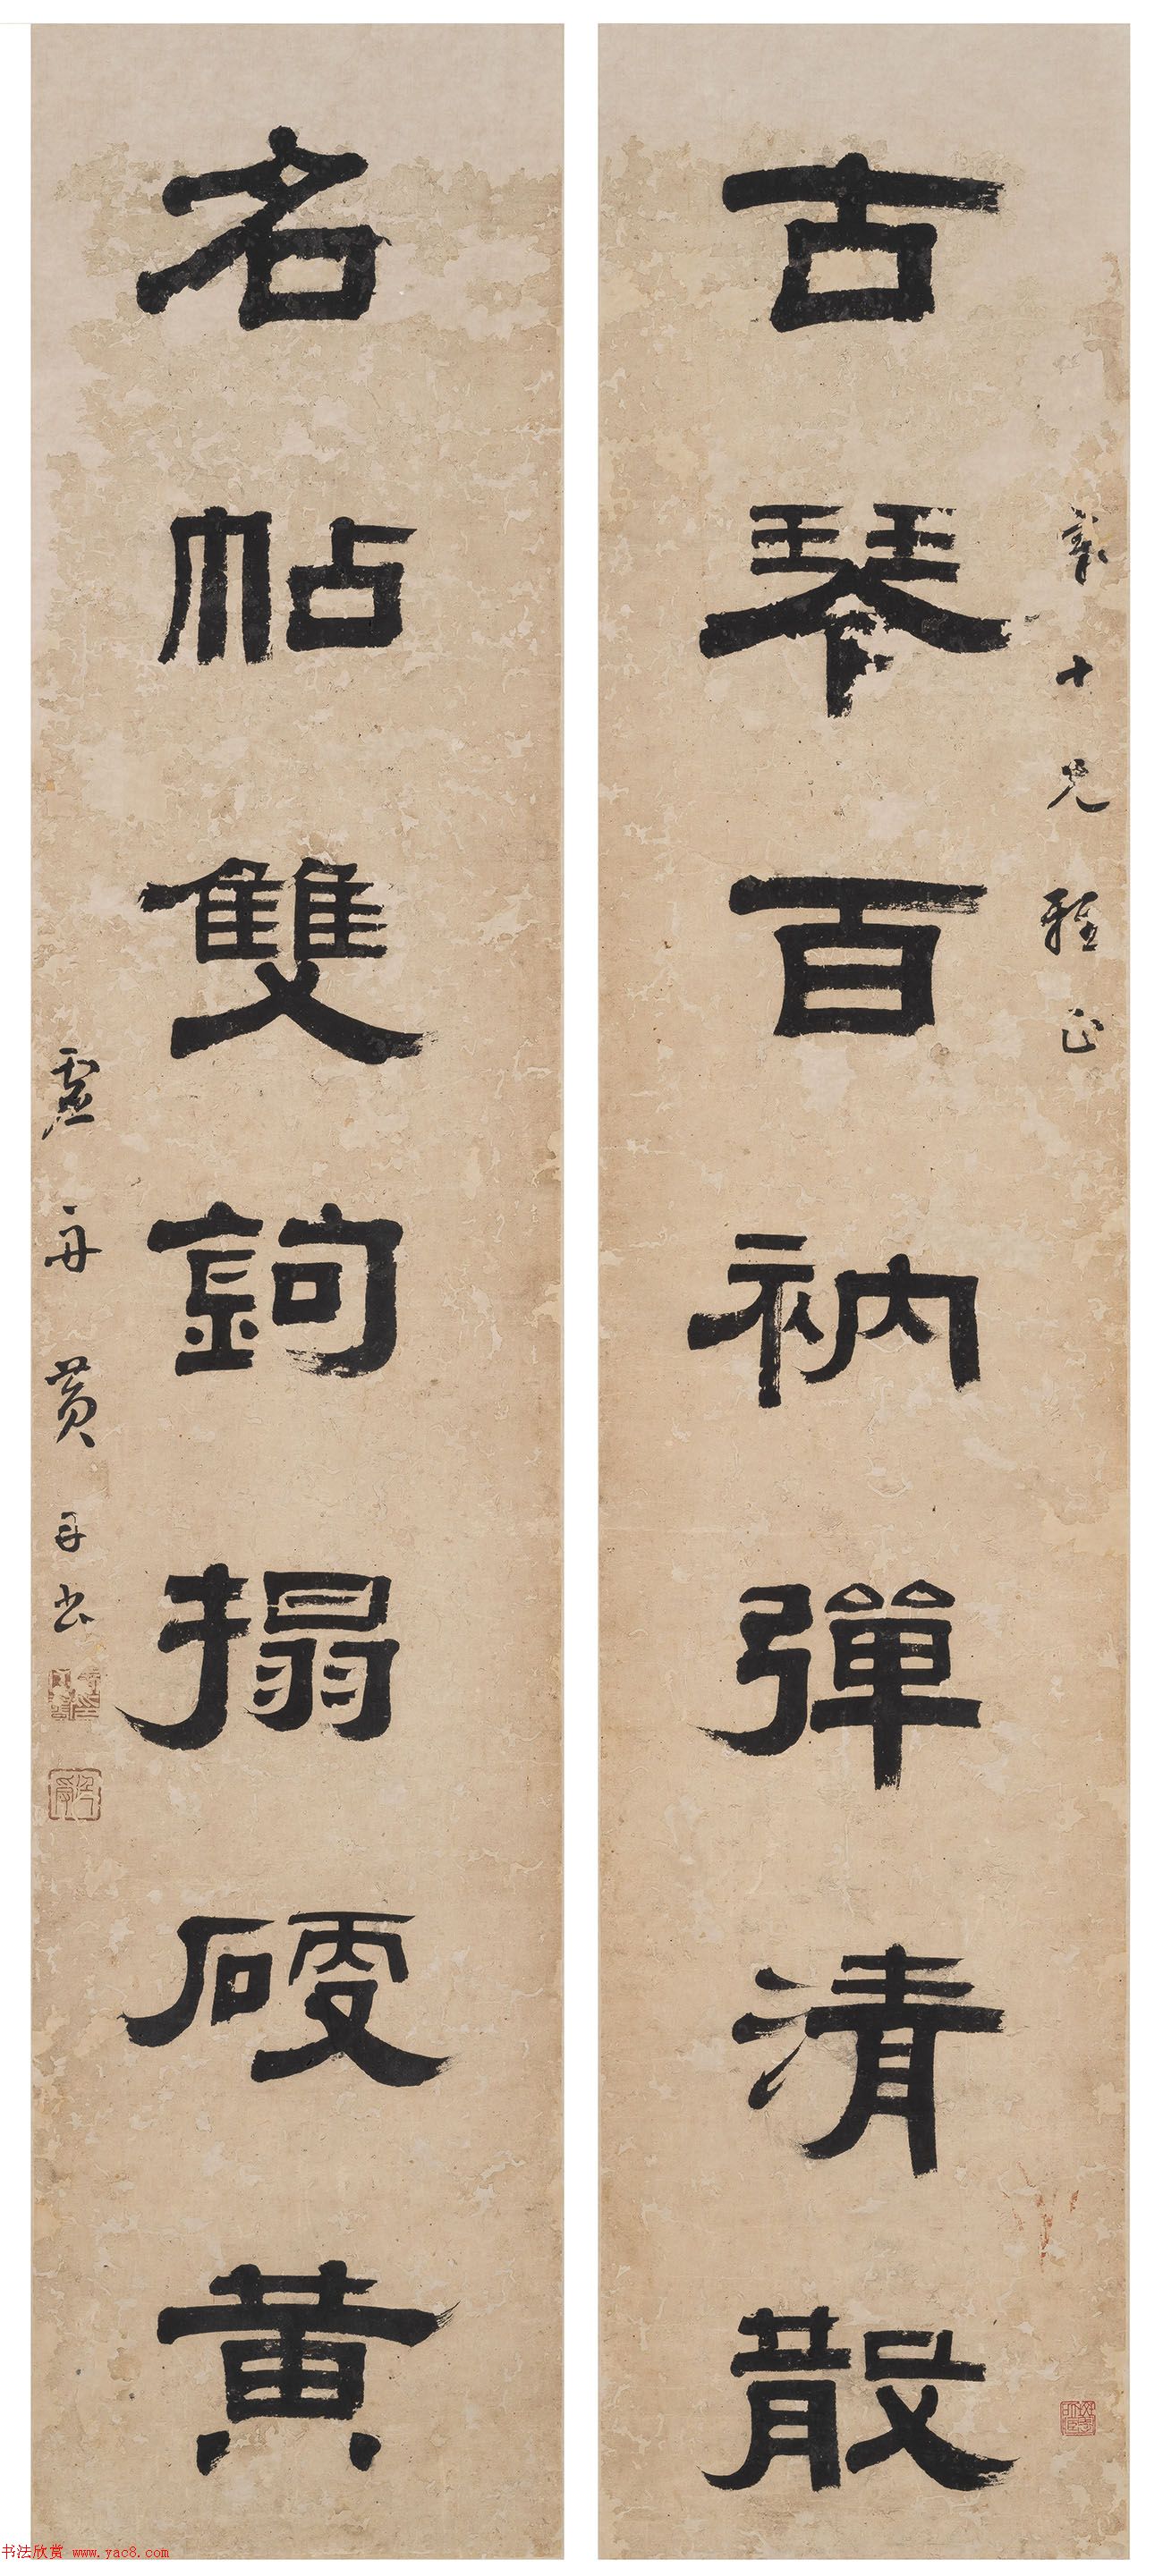 古琴百衲彈清散
十兄雅正
名帖雙鉤搨硬黄
虛舟黄
书法欣赏 www.yac8.com